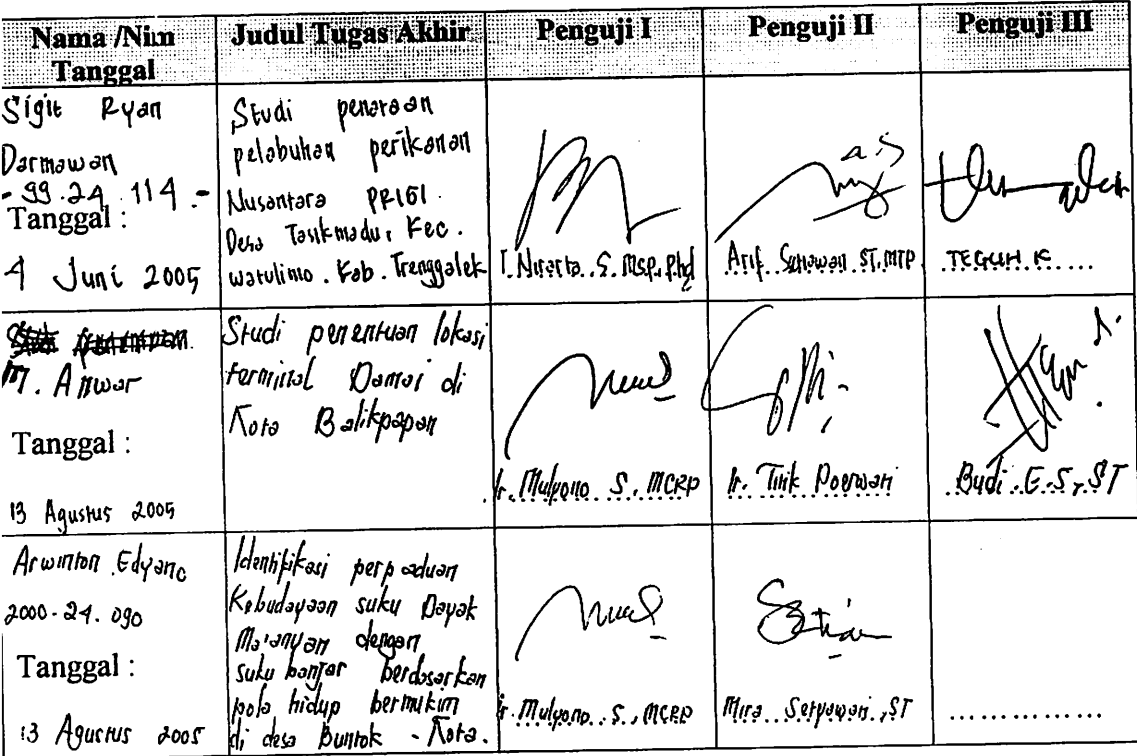 Nama /Nim Tanggal
Judul Tugas Akhir
Penguji I
Penguji II
Penguji III
Sigit Ryan
Darmawan
- 99.24.114.-
Tanggal :
4 Juni 2005
Studi penataan
pelabuhan perikanan
Nusantara PRIGI.
Desa Tasikmadu, Kec.
watulimo. Kab. Trenggalek
Arif. Setiawan ST, MTP
TEGUH K
M. Anwar
Tanggal :
13 Agustus 2005
Studi penentuan lokasi
terminal Damai di
Kota Balikpapan
Ir. Mulyono S, MCRP
Ir. Titik Poerwati
Budi. E.S, ST
Arwinton Edyanc
2000-24.090
Tanggal :
13 Agustus 2005
Identifikasi perpaduan
Kebudayaan suku Dayak
Ma'anyan dengan
suku banjar berdasarkan
pola hidup bermukim
di desa Buntok - Kota.
Ir. Mulyono S, MCRP
Mira Setyawati, ST